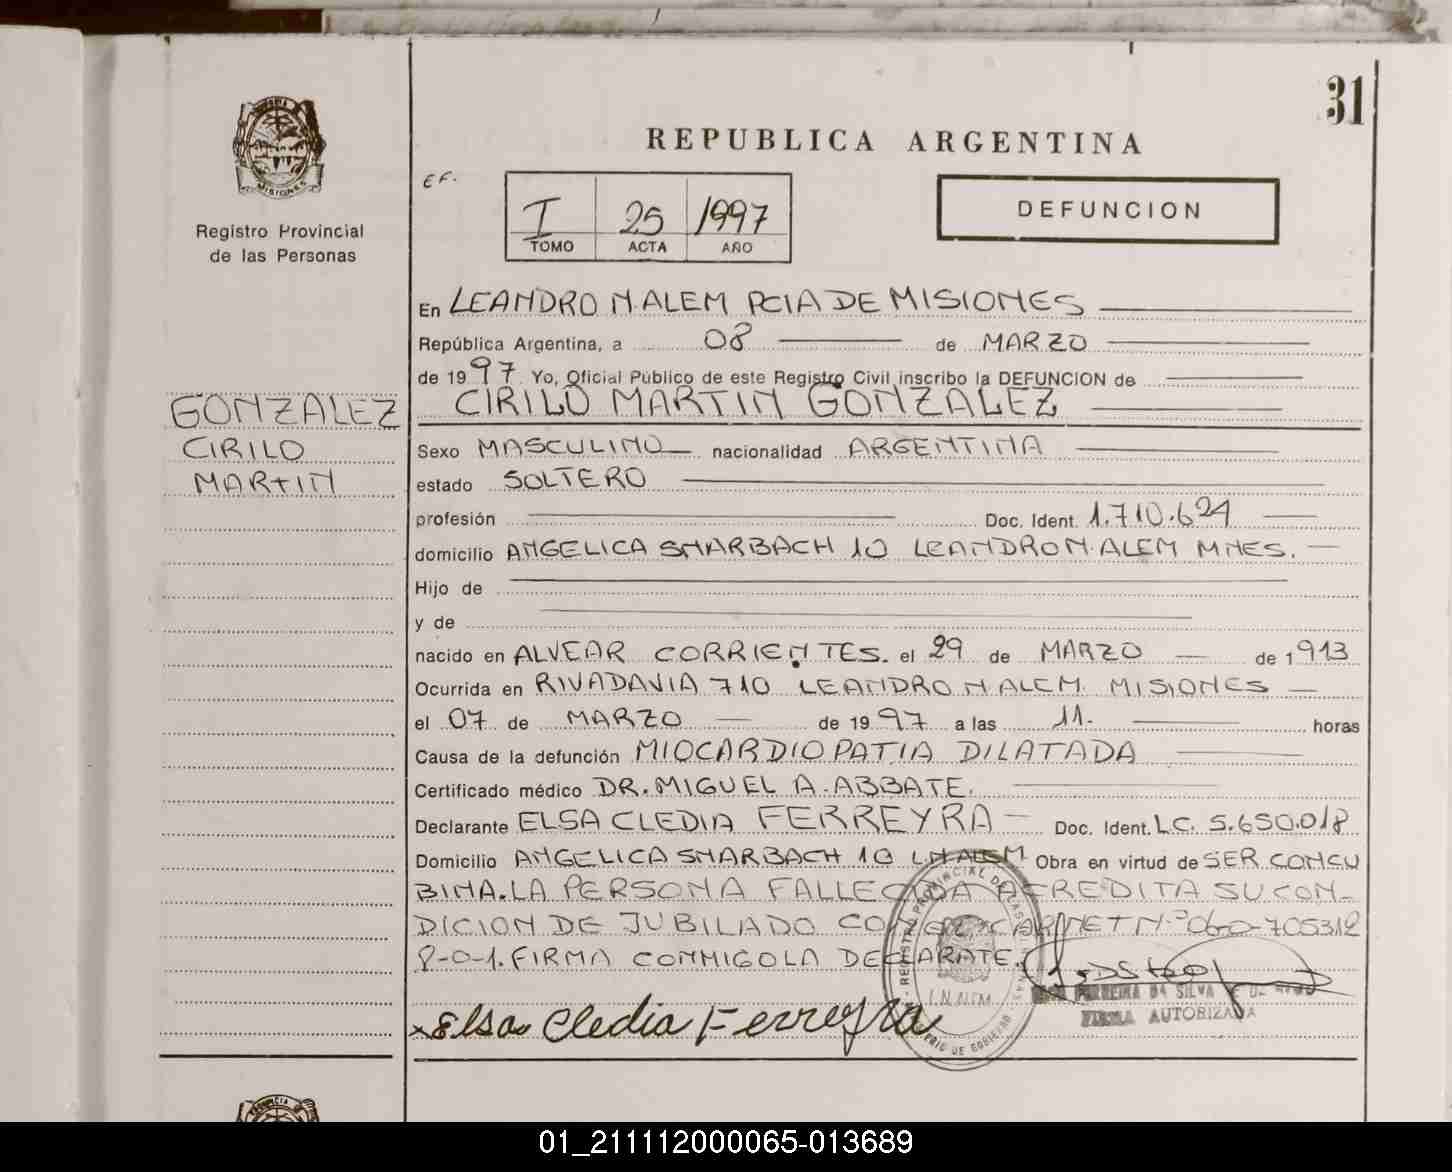 31
REPUBLICA ARGENTINA
MISIONES
Registro Provincial
de las Personas
EF.
I 25 1997
TOMO ACTA AÑO
DEFUNCION
En LEANDRO N. ALEM PCIA DE MISIONES
República Argentina, a 08 de MARZO
de 1997. Yo, Oficial Público de este Registro Civil inscribo la DEFUNCION de
CIRILO MARTIN GONZALEZ
GONZALEZ
CIRILO
MARTIN
Sexo MASCULINO nacionalidad ARGENTINA
estado SOLTERO
profesión Doc. Ident. 1.710.624
domicilio ANGELICA SMARBACH 10 LEANDRO N. ALEM MNES.
Hijo de
y de
nacido en ALVEAR CORRIENTES. el 29 de MARZO de 1913
Ocurrida en RIVADAVIA 710 LEANDRO N ALEM MISIONES
el 07 de MARZO de 1997 a las 11. horas
Causa de la defunción MIOCARDIOPATIA DILATADA
Certificado médico DR. MIGUEL A. ABBATE.
Declarante ELSA CLEDIA FERREYRA Doc. Ident. L.C. 5.650.018
Domicilio ANGELICA SMARBACH 10 L.N ALEM Obra en virtud de SER CONCU
BINA. LA PERSONA FALLECIDA ACREDITA SU CON-
DICION DE JUBILADO CON CARNET N.º 060-705312
8-0-1. FIRMA CONMIGO LA DECLARATE.
Elsa Cledia Ferreyra
FERREIRA DA SILVA
FIRMA AUTORIZADA
REGISTRO PROVINCIAL DE LAS
DE GOBIERNO
01_211112000065-013689